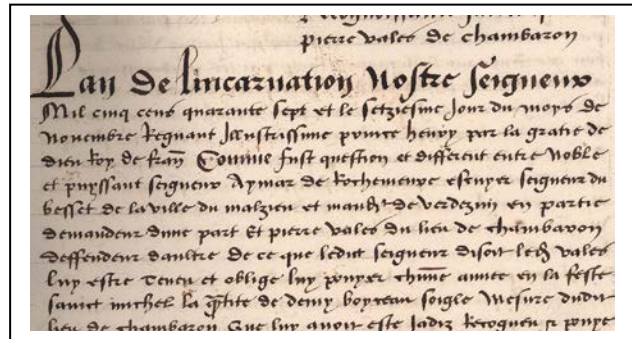 pierre vales de chambaron
Lan de lincarnation Nostre Seigneur
Mil cinq cens quarante sept et le setziesme Jour du moys de
novembre Regnant Illustrissime prince henry par la gratie de
dieu Roy de fran Comme fust question et different entre Noble
et puyssant seigneur Aymar de Rochemeure escuyer seigneur du
besset de la ville du malzieu et mand de verdezun en partie
demandeur dune part Et pierre vales du lieu de chambaron
deffendeur daultre de ce que ledit seigneur disoit led vales
luy estre tenu et oblige luy payer chune annee en la feste
sainct michel la qtite de demy boyceau soigle Mesure dudit
lieu de chambaron Que luy avoit este Jadiz Recogneu p